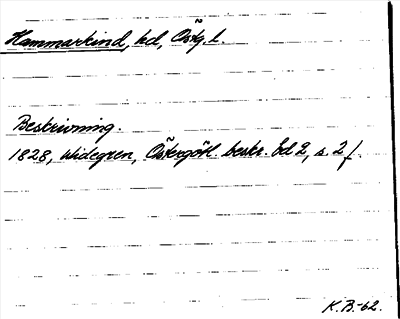 Hammarkind, hd, Östg. l.
Beskrivning.
1828, Widegren, Östergötl. beskr. Bd 2, s. 2 f.
K.B.-62.